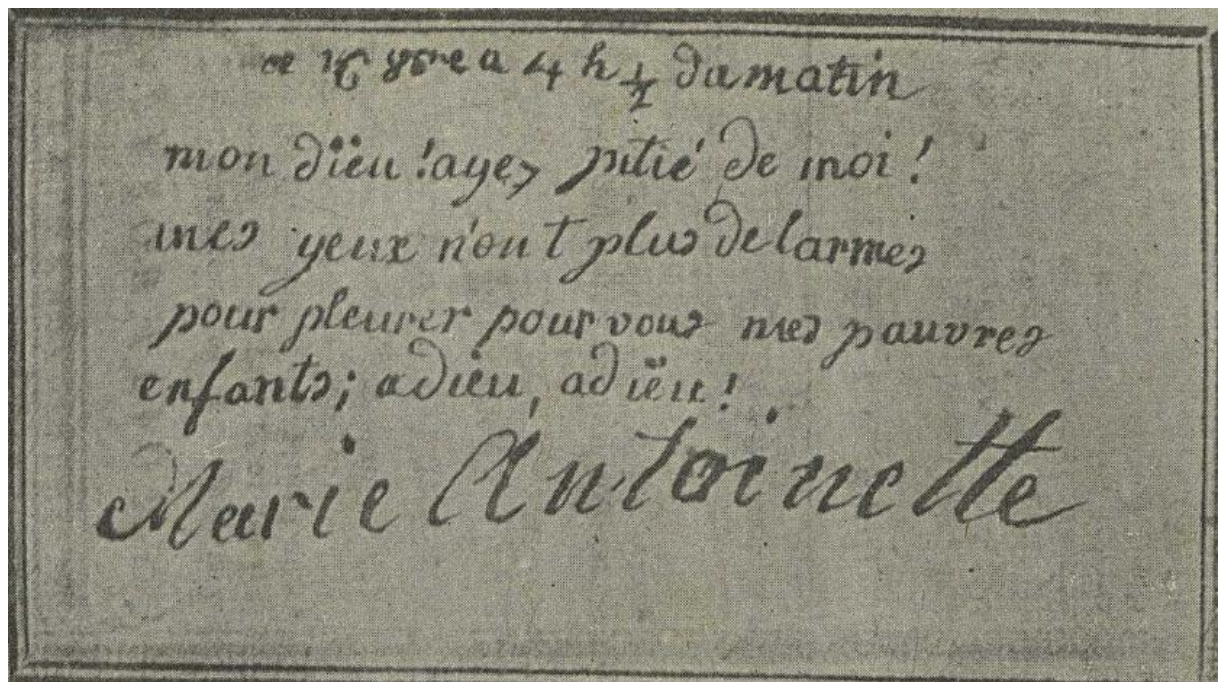 ce 16 8bre a 4 h 1/2 du matin
mon dïeu ! ayez pitié de moi !
mes yeux n'ont plus de larmes
pour pleurer pour vous mes pauvres
enfants; adieu, adïeu !
Marie Antoinette